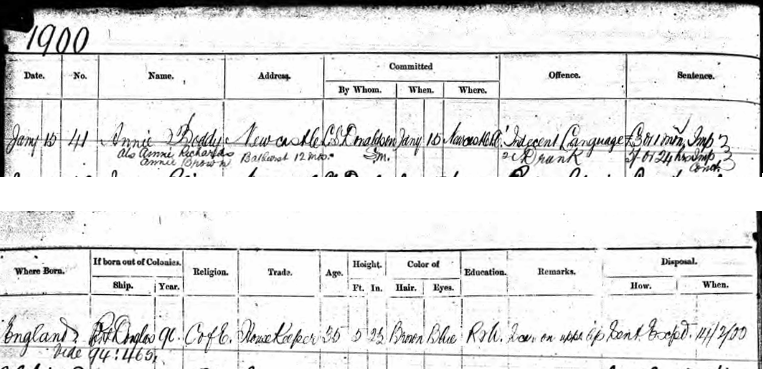 1900
Date. No. Name. Address. Committed Offence. Sentence.
By Whom. When. Where.
Jany 15 41 Annie Boddy Newcastle C S Donaldson Jany 15 Newcastle 1 Indecent Language £3 or 1 mon Imp
als Annie Richards Bathurst 12 mos. S.M. 2 Drunk or 24 hrs Imp
Annie Brown Conc.
Where Born. If born out of Colonies. Religion. Trade. Age. Height. Color of Education. Remarks. Disposal.
Ship. Year. Ft. In. Hair. Eyes. How. When.
England Port Douglas 90. C of E. House Keeper 35 5 Brown Blue R&W. Scar on upper lip Sent. Exp'd. 14/2/00
Vide 94:465,